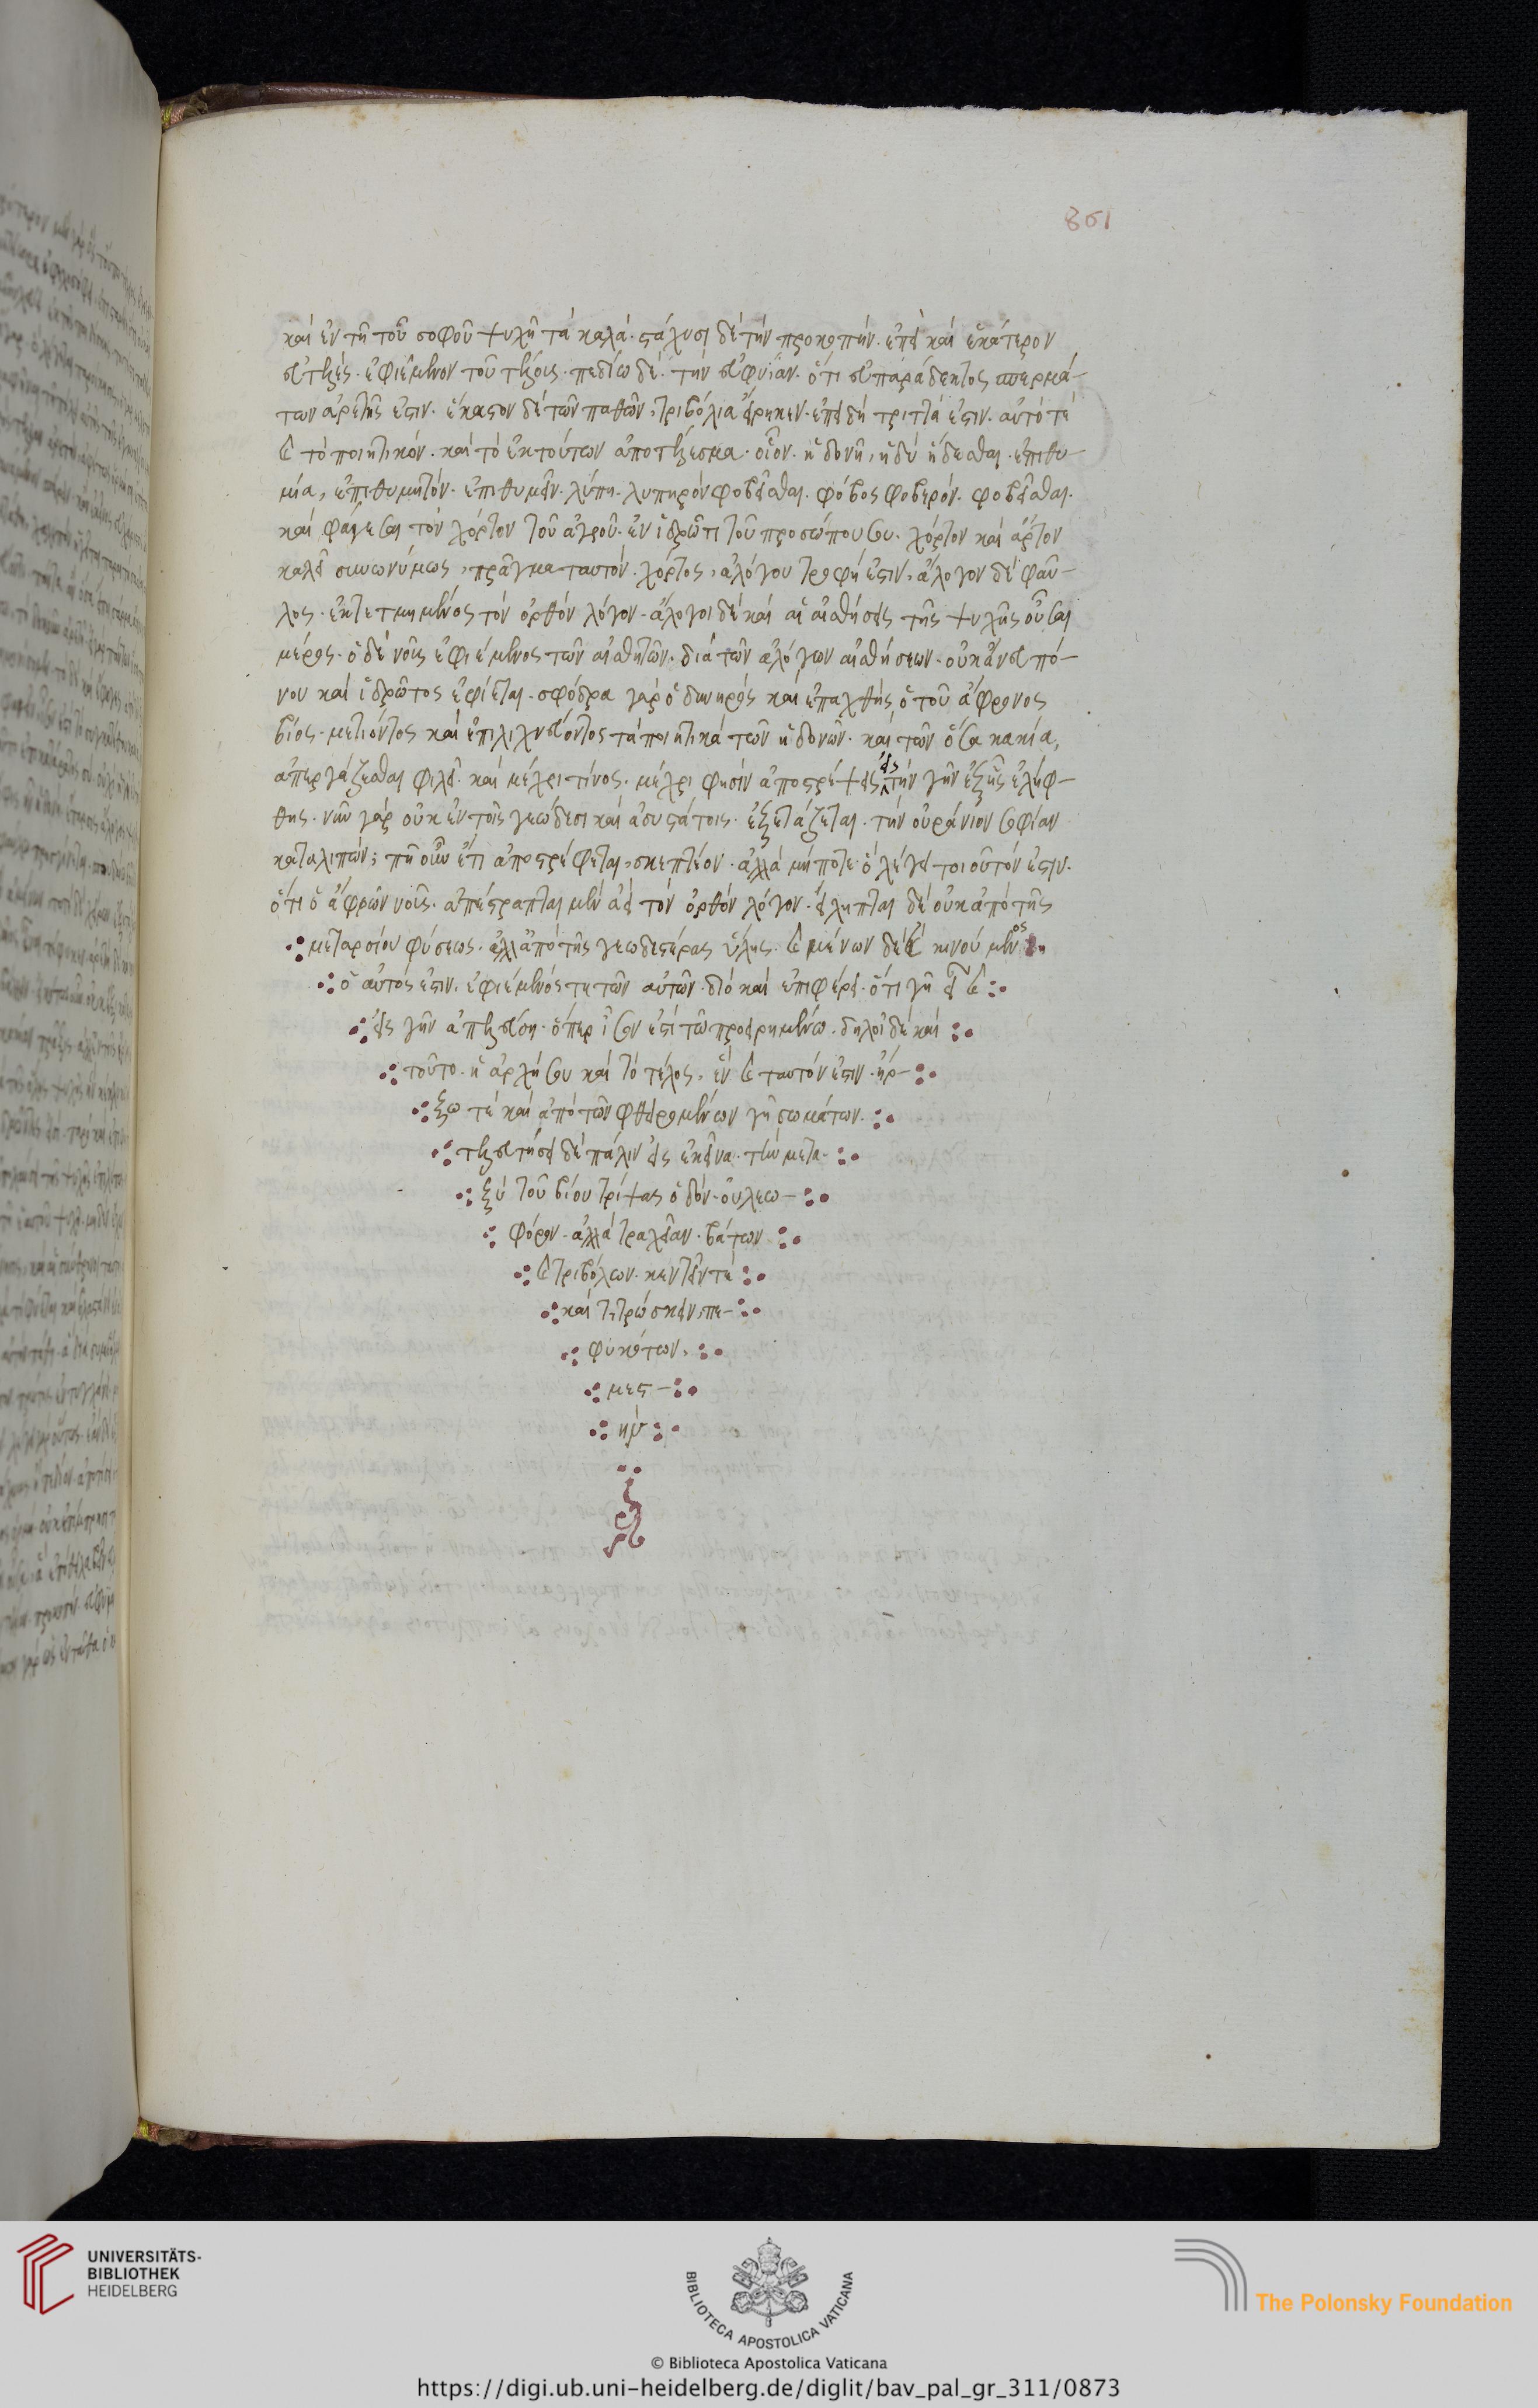 861
καὶ ἐν τῆ τοῦ σοφοῦ ψυχῆ τὰ καλά. στάχυσι δὲ τὴν προκοπήν. ἐπεὶ καὶ ἑκάτερον
ἀτελὲς. ἐφιέμενον τοῦ τέλους. πεδίω δὲ. τὴν εὐφυΐαν. ὅτι εὐπαράδεκτος σπερμά-
των ἀρετῆς ἐστιν. ἕκαστον δὲ τῶν παθῶν, τριβόλια εἴρηκεν. ἐπειδὴ τριττά ἐστιν. αὐτό τε
καὶ τὸ ποιητικόν. καὶ τὸ ἐκ τούτων ἀποτέλεσμα. οἷον. ἡδονὴ, ἡδὺ ἥδεσθαι. ἐπιθυ-
μία, ἐπιθυμητόν. ἐπιθυμεῖν. λύπη. λυπηρὸν φοβεῖσθαι. φόβος φοβερόν. φοβεῖσθαι.
καὶ φάγεσαι τὸν χόρτον τοῦ ἀγροῦ. ἐν ἱδρῶτι τοῦ προσώπου σου. χόρτον καὶ ἄρτον
καλεῖ συνωνύμως, πρᾶγμα ταυτόν. χόρτος, ἀλόγου τροφή ἐστιν, ἄλογον δὲ φαῦ-
λος. ἐκτετμημένος τὸν ὀρθὸν λόγον. ἄλογοι δὲ καὶ αἱ αἰσθήσεις τῆς ψυχῆς οὖσαι
μέρος. ὁ δὲ νοῦς ἐφιέμενος τῶν αἰσθητῶν. διὰ τῶν ἀλόγων αἰσθήσεων. οὐκ ἄνευ πό-
νου καὶ ἱδρῶτος ἐφίεται. σφόδρα γὰρ ὀδυνηρὸς καὶ ἐπαχθὴς ὁ τοῦ ἄφρονος
βίος. μετιόντος καὶ ἐπιλιχνεύοντος τὰ ποιητικὰ τῶν ἡδονῶν. καὶ τῶν ὅσα κακία,
ἀπεργάζεσθαι φιλεῖ. καὶ μέχρι τίνος. μέχρι φησὶν ἀποστρέψεις εἰς τὴν γῆν ἐξ ἧς ἐλήφ-
θης. νῦν γὰρ οὐκ ἐν τοῖς γεώδεσι καὶ ἀσυστάτοις. ἐξετάζεται. τὴν οὐράνιον σοφίαν
καταλιπών; πῆ οὖν ἔτι ἀποστρέφεται, σκεπτέον. ἀλλὰ μήποτε ὃ λέγει τοιοῦτόν ἐστιν.
ὅτι ὁ ἄφρων νοῦς. ἀπέστραπται μὲν ἀεὶ τὸν ὀρθὸν λόγον. εἴληπται δὲ οὐκ ἀπὸ τῆς
μεταρσίου φύσεως. ἀλλ' ἀπὸ τῆς γεωδεστέρας ὕλης. καὶ μένων δὲ καὶ κινούμενος
ὁ αὐτός ἐστιν. ἐφιέμενός τε τῶν αὐτῶν. διὸ καὶ ἐπιφέρει. ὅτι γῆ εἶ καὶ
εἰς γῆν ἀπελεύση. ὅπερ ἴσον ἐστὶ τῶ προειρημένω. δηλοῖ δὲ καὶ
τοῦτο. ἡ ἀρχή σου καὶ τὸ τέλος, ἓν καὶ ταυτόν ἐστιν. ἤρ-
ξω τε καὶ ἀπὸ τῶν φθειρομένων γῆ σωμάτων.
τελευτήσει δὲ πάλιν εἰς ἐκεῖνα. τὴν μετα-
ξὺ τοῦ βίου τρίψας ὁδόν. οὐ λεω-
φόρον. ἀλλὰ τραχεῖαν. βάτων
καὶ τριβόλων. κεντεῖν τε
καὶ τιτρώσκειν πε-
φυκότων.
μεστ-
ήν
UNIVERSITÄTS-
BIBLIOTHEK
HEIDELBERG
BIBLIOTECA APOSTOLICA VATICANA
The Polonsky Foundation
© Biblioteca Apostolica Vaticana
https://digi.ub.uni-heidelberg.de/diglit/bav_pal_gr_311/0873